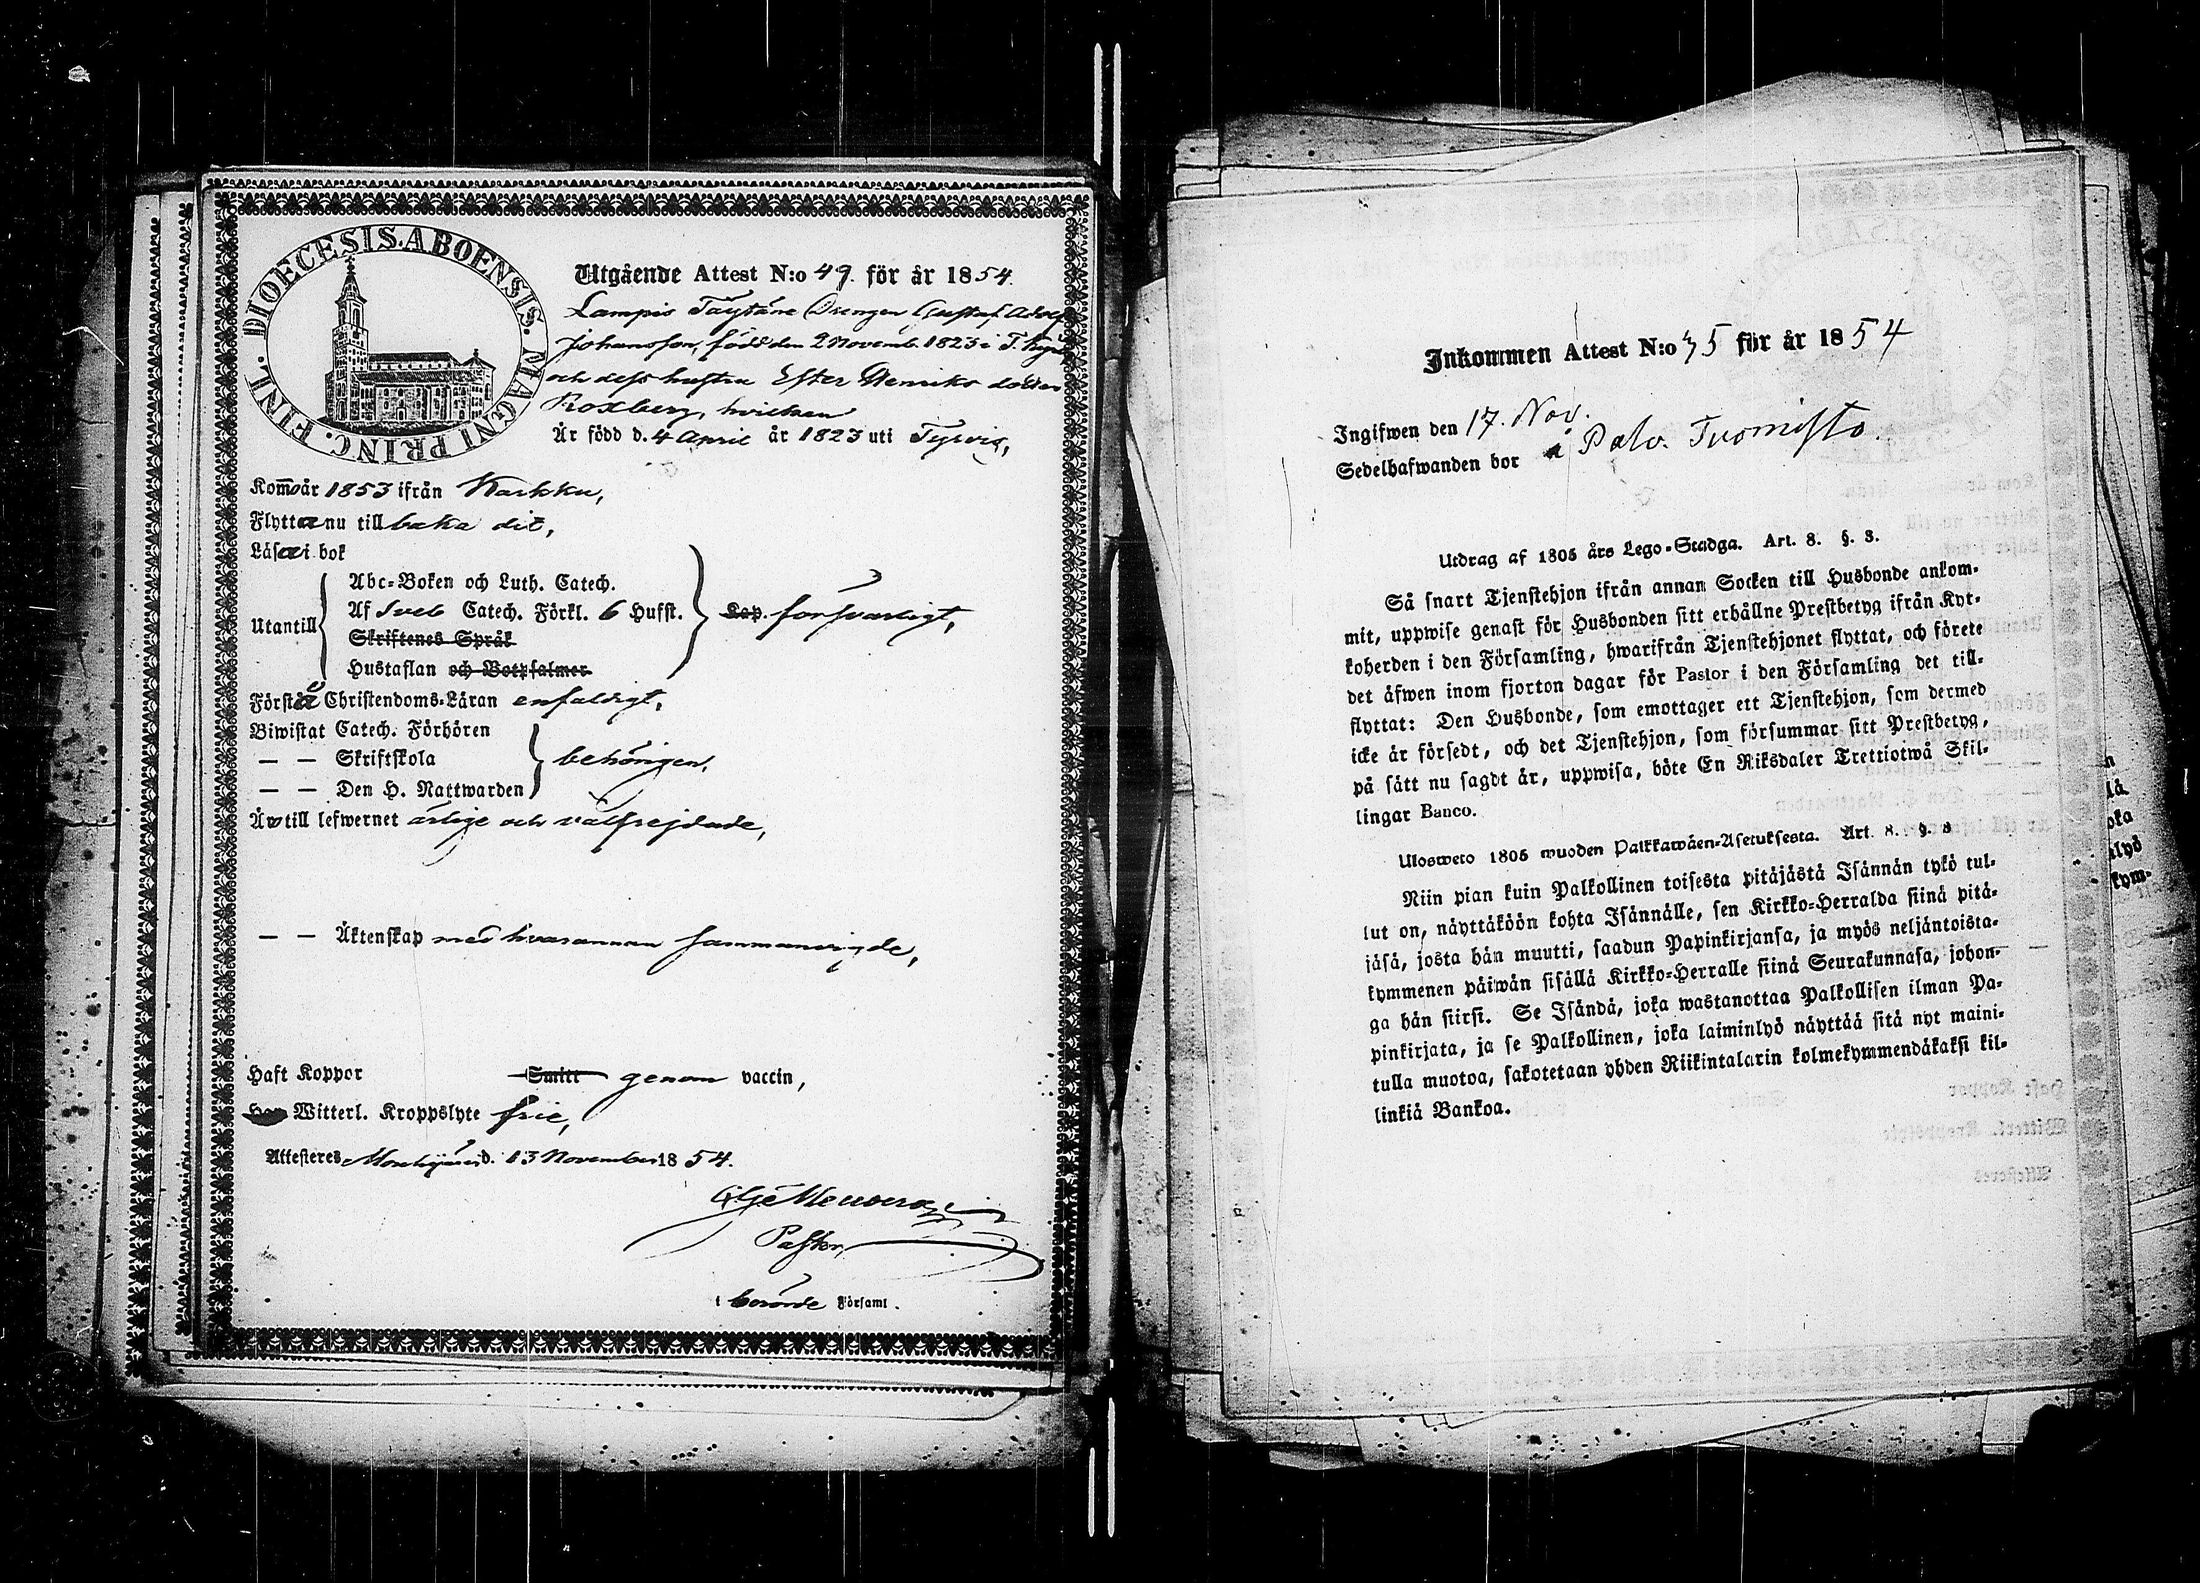 DIOECESIS. ABOENSIS. MAGNI PRINC. FINL.
Utgående Attest N:o 49. för år 1854.
Lampis Täytäre Drengen Gustaf Adolf
Johansson, född den 2 Novemb. 1823 i T.
och dess hustru Ester Henriks dotter
Roxberg, hvilken
Är född d. 4 April år 1823 uti Tyrvis,
Kommo år 1853 ifrån Karkku,
Flytta nu tillbaka dit,
Läsa i bok
Abc-Boken och Luth. Catech.
Utantill Af Sveb Catech. Förkl. 6 Hufst. Lap. försvarligt,
Skriftenes Språk
Hustaflan och Botpsalmer
Förstå Christendoms-Läran enfaldigt,
Biwistat Catech. Förhören
— — Skriftskola behörigen,
— — Den H. Nattwarden
Äro till lefwernet ärlige och välfrejdade,
— — Äktenskap med hvarannan sammanvigde,
Haft Koppor Smitt genom vaccin,
Har Witterl. Kroppslyte frie,
Attesteres Mouhijärvi d. 13 November 1854.
Pastor
i berörde Församl.
Inkommen Attest N:o 35 för år 1854
Ingifwen den 17. Nov.
Sedelhafwanden bor å Palv. Tuomisto.
Utdrag af 1805 års Lego-Stadga. Art. 8. §. 3.
Så snart Tjenstehjon ifrån annan Socken till Husbonde ankom-
mit, uppwise genast för Husbonden sitt erhållne Prestbetyg ifrån Kyr-
koherden i den Församling, hwarifrån Tjenstehjonet flyttat, och förete
det äfwen inom fjorton dagar för Pastor i den Församling det till-
flyttat: Den Husbonde, som emottager ett Tjenstehjon, som dermed
icke är försedt, och det Tjenstehjon, som försummar sitt Prestbetyg,
på sätt nu sagdt är, uppwisa, böte En Riksdaler Trettiotwå Skil-
lingar Banco.
Ulosweto 1805 wuoden Palkkawäen-Asetuksesta. Art. 8. §. 3
Niin pian kuin Palkollinen toisesta pitäjästä Isännän tykö tul-
lut on, näyttäköön kohta Isännälle, sen Kirkko-Herralda siinä pitä-
jäsä, josta hän muutti, saadun Papinkirjansa, ja myös neljäntoista-
kymmenen päiwän sisällä Kirkko-Herralle siinä Seurakunnasa, johon-
ga hän siirsi. Se Isändä, joka wastanottaa Palkollisen ilman Pa-
pinkirjata, ja se Palkollinen, joka laiminlyö näyttää sitä nyt maini-
tulla muotoa, sakotetaan yhden Riikintalarin kolmekymmendäkaksi kil-
linkiä Bankoa.